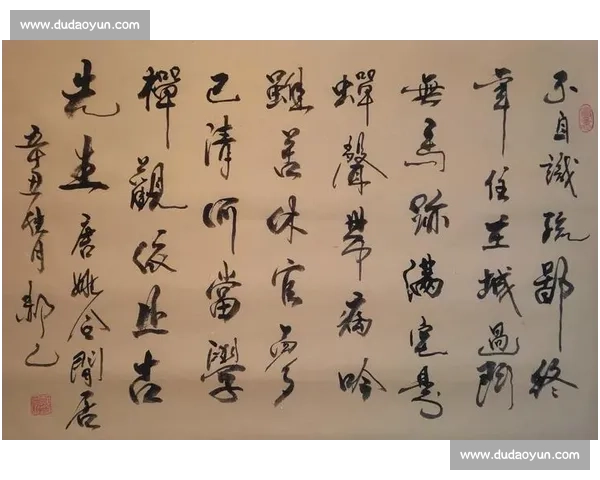 www.dudaoyun.com
不自識疏鄙終
年住在城過門
無馬跡滿宅是
蟬聲帶病吟
雖苦休官夢
已清何當學
禪觀依止古
先生 唐姚合閒居
辛丑佳月
www.dudaoyun.com